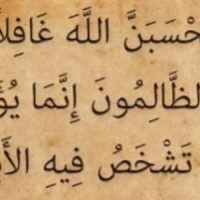 حْسَبَنَّ اللَّهَ غَافِلًا
لظَّالِمُونَ إِنَّمَا يُؤَ
تَشْخَصُ فِيهِ الْأَ